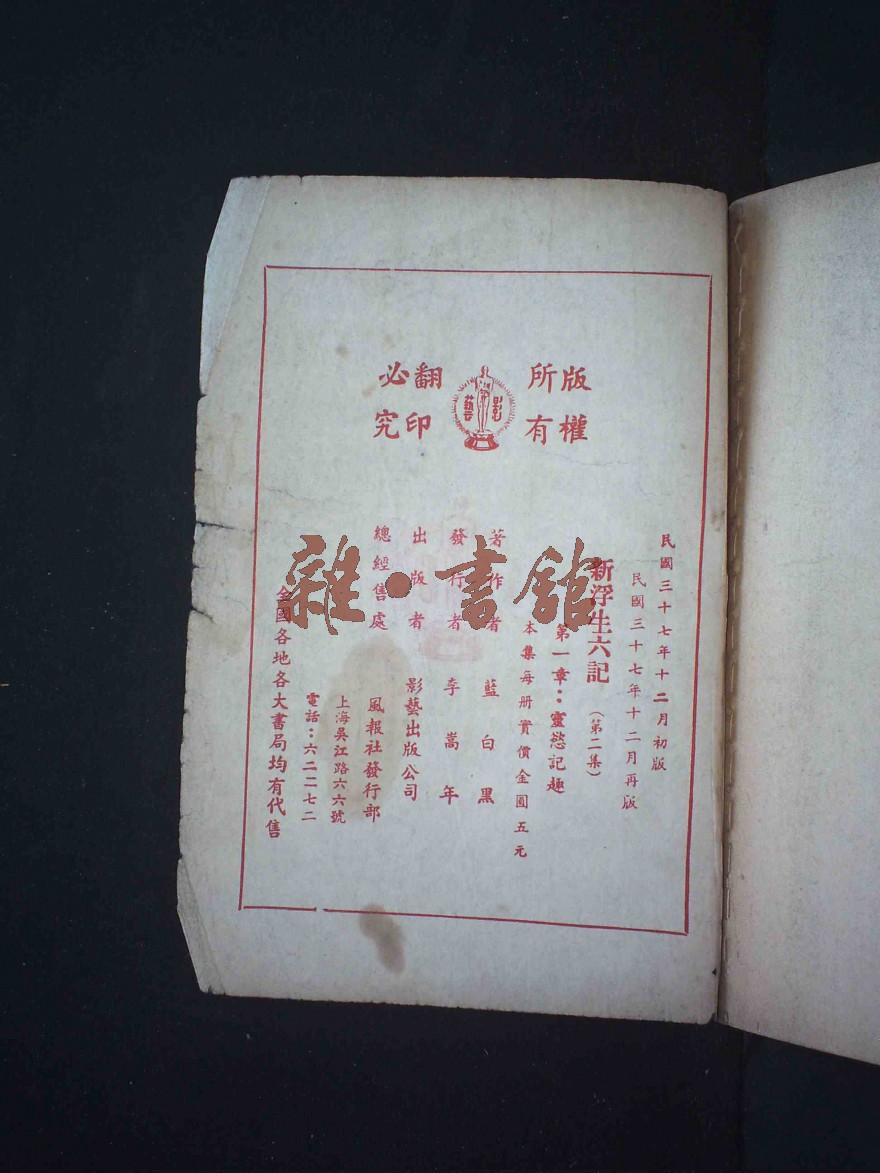 版權所有
翻印必究
影藝
民國三十七年十二月初版
民國三十七年十二月再版
新浮生六記（第二集）
第一章：靈慾記趣
本集每册實價金圓五元
著作者 藍白黑
發行者 李嵩年
出版者 影藝出版公司
總經售處 風報社發行部
上海吳江路六六號
電話：六二二七二
全國各地各大書局均有代售
雜·書館